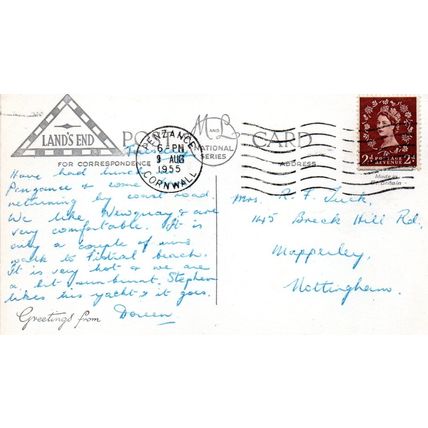 LAND'S END
POST CARD
M AND L
NATIONAL
SERIES
PENZANCE
6-PM
9 AUG
1955
CORNWALL
2½D POSTAGE REVENUE 2½D
FOR CORRESPONDENCE
ADDRESS
Made in
Gt. Britain
Tuesday
Have had lunch
Penzance & come
returning by coast road.
We like Newquay & are
very comfortable. It is
only a couple of mins
walk to Fistral beach.
It is very hot & we are
a bit sunburnt. Stephen
likes his yacht & it goes.
Greetings from Doreen
Mrs. R. F. Tuck,
145 Breck Hill Rd,
Mapperley,
Nottingham.